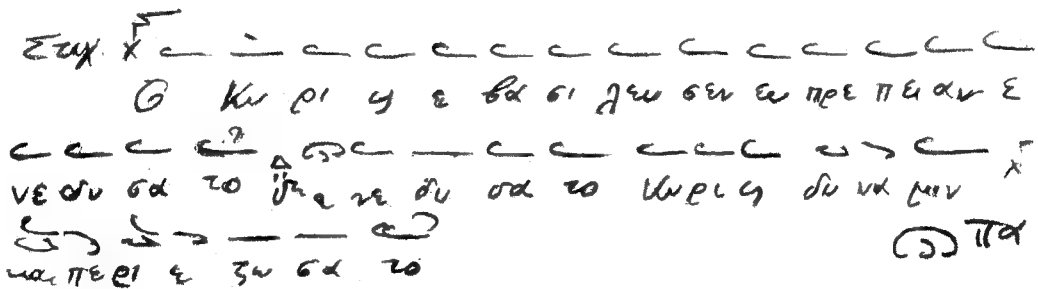 Στιχ.
Ο Κυ ρι ος ε βα σι λευ σεν ευ πρε πει αν ε
νε δυ σα το ε νε δυ σα το Κυ ρι ος δυ να μιν
και πε ρι ε ζω σα το Πα